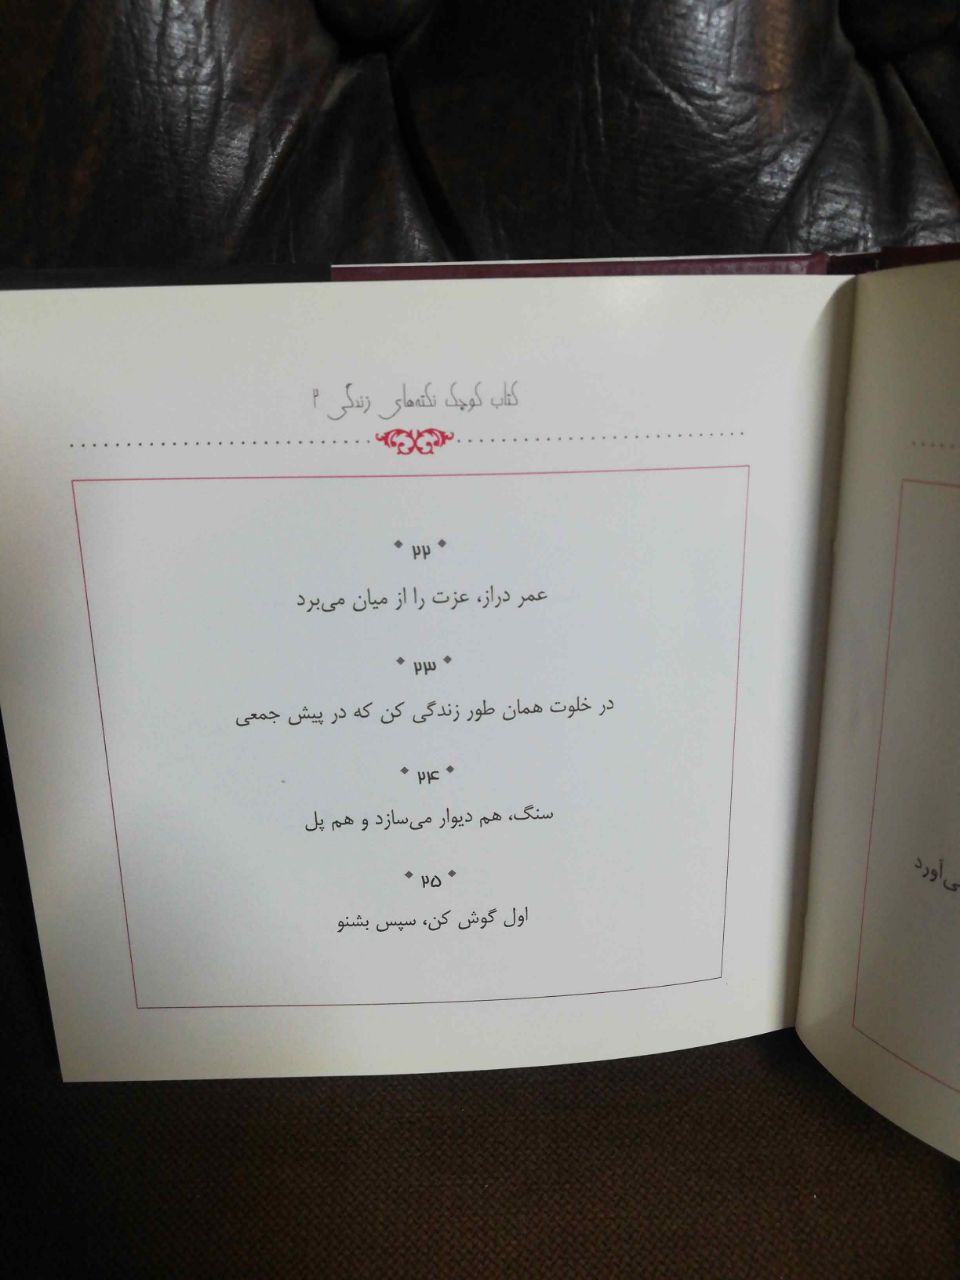 کتاب کوچک نکته‌های زندگی ۲
۲۲
عمر دراز، عزت را از میان می‌برد
۲۳
در خلوت همان طور زندگی کن که در پیش جمعی
۲۴
سنگ، هم دیوار می‌سازد و هم پل
۲۵
اول گوش کن، سپس بشنو